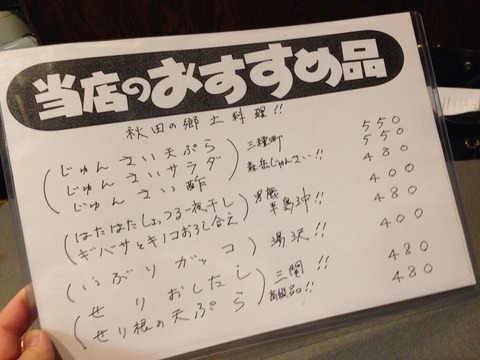 当店のおすすめ品
秋田の郷土料理!!
じゅんさい天ぷら 三種町 550
じゅんさいサラダ 森岳じゅんさい!! 550
じゅんさい酢 480
はたはたしょっつる一夜干し 男鹿 400
ギバサとキノコおろし合え 半島沖!! 480
いぶりガッコ 湯沢!! 400
せりおしたし 三関!! 480
せり根の天ぷら 高級品!! 480